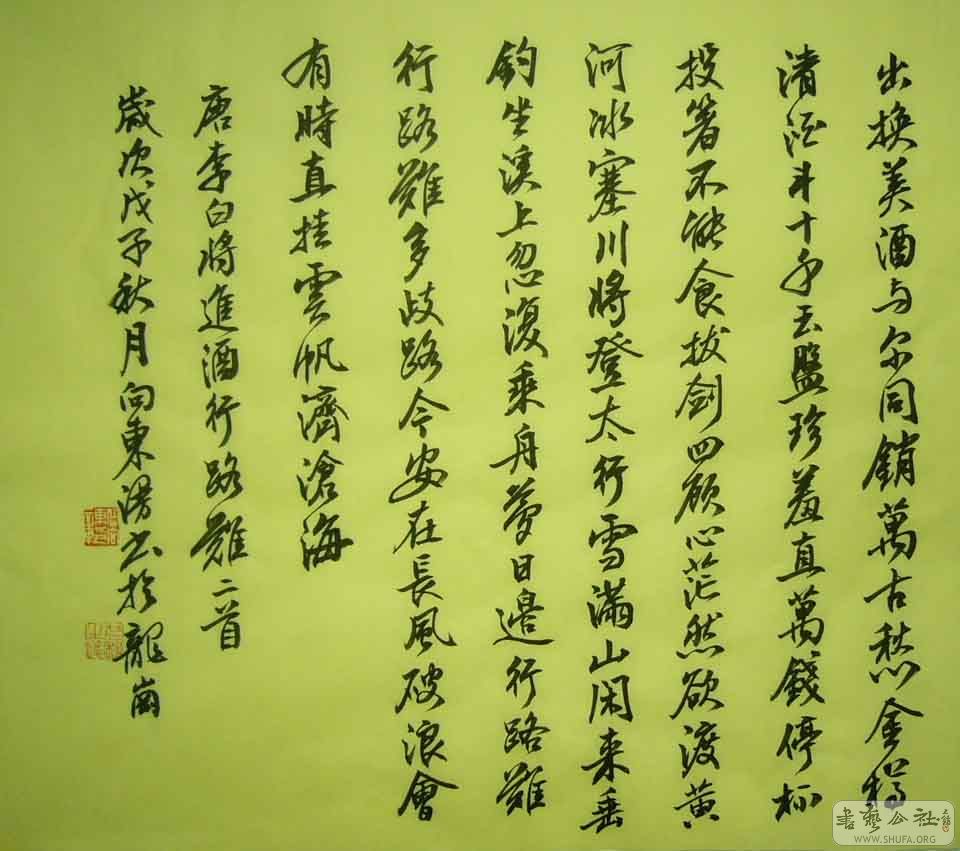 出换美酒与尔同銷萬古愁金樽
清酒斗十千玉盤珍羞直萬錢停杯
投箸不能食拔劍四顧心茫然欲渡黄
河冰塞川將登太行雪滿山闲来垂
釣坐溪上忽復乘舟夢日邊行路難
行路難多歧路今安在長風破浪會
有時直挂雲帆濟滄海
唐李白將進酒行路難二首
歲次戊子秋月向東湯书於龍崗
書藝公社
WWW.SHUFA.ORG